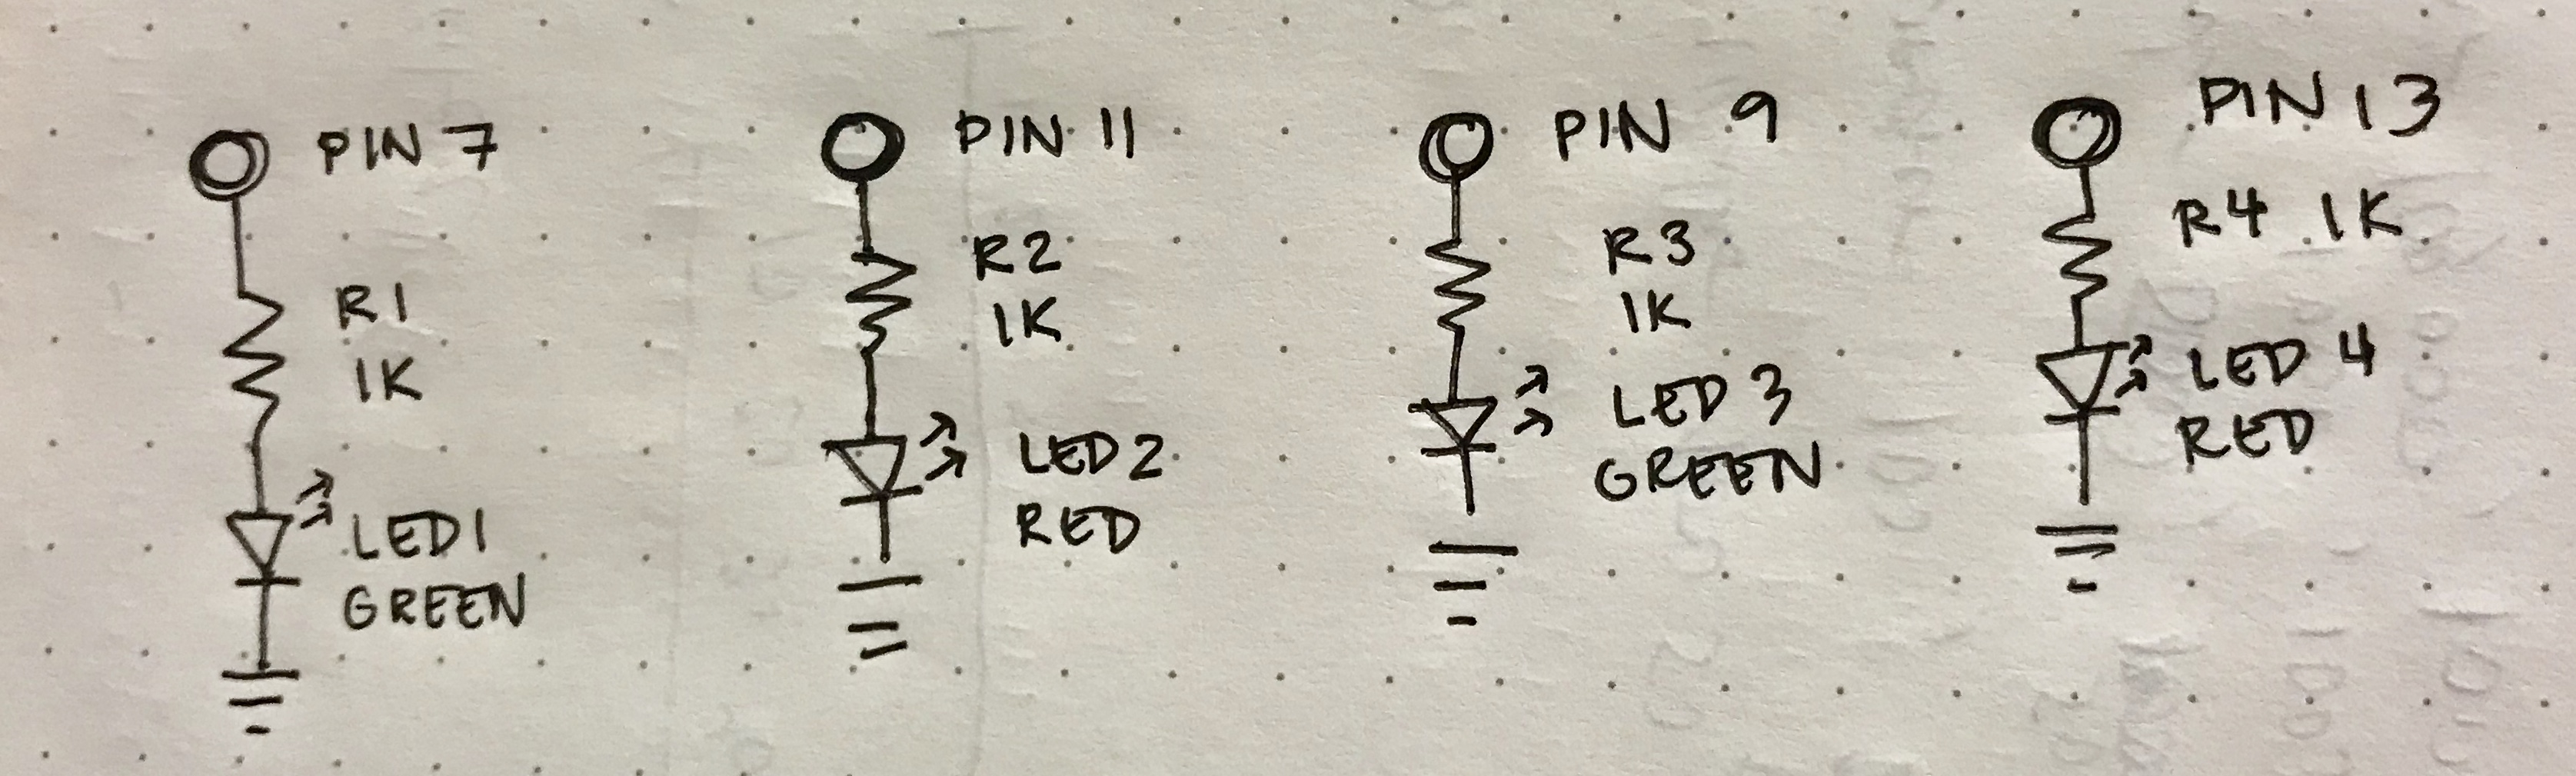 PIN 7
R1
1K
LED1
GREEN
PIN 11
R2
1K
LED2
RED
PIN 9
R3
1K
LED 3
GREEN
PIN 13
R4 1K
LED 4
RED